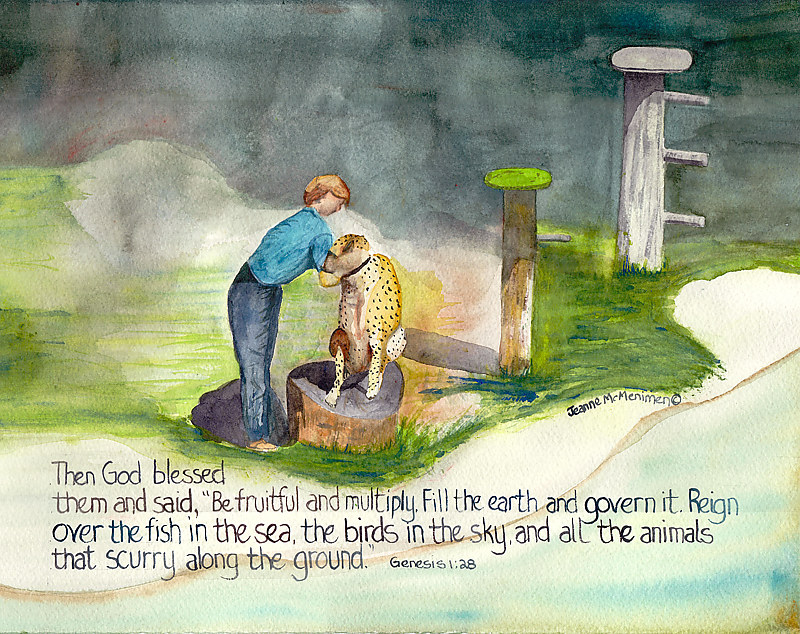 Jeanne McMenimen©
Then God blessed
them and said, "Be fruitful and multiply. Fill the earth and govern it. Reign
over the fish in the sea, the birds in the sky, and all the animals
that scurry along the ground." Genesis 1:28